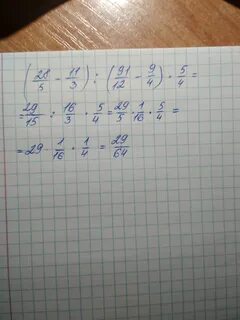 (28/5 - 11/3) : (91/12 - 9/4) · 5/4 =
= 29/15 : 16/3 · 5/4 = 29/5 · 1/16 · 5/4 =
= 29 · 1/16 · 1/4 = 29/64